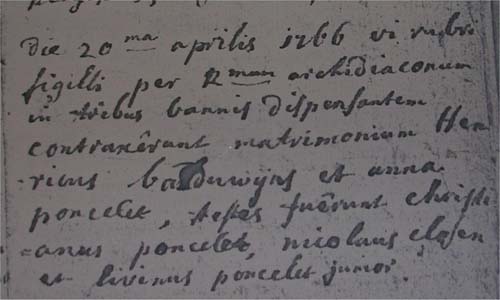 die 20 ma aprilis 1766 vi rubri
sigilli per Rmum archidiaconum
in tribus bannis dispensantem
contraxêrunt matrimonium Hen
-ricus balduwijns et anna
poncelet, testes fuêrunt christi
-anus poncelet, nicolaus
et livinus poncelet junior.